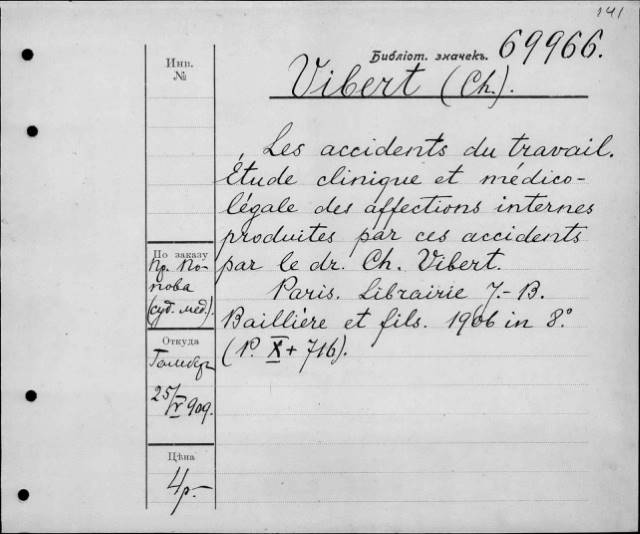 141
Библіот. значекъ. 69966.
Vibert (Ch.).
Инв.
№
Les accidents du travail.
Étude clinique et médico-
légale des affections internes
produites par ces accidents
par le dr. Ch. Vibert.
Paris. Librairie J.-B.
Baillière et fils. 1906 in 8.°
(P. X + 716).
По заказу
Пр. По-
пова
(суд. мед.).
Откуда
25/V 909.
Цѣна
4р-